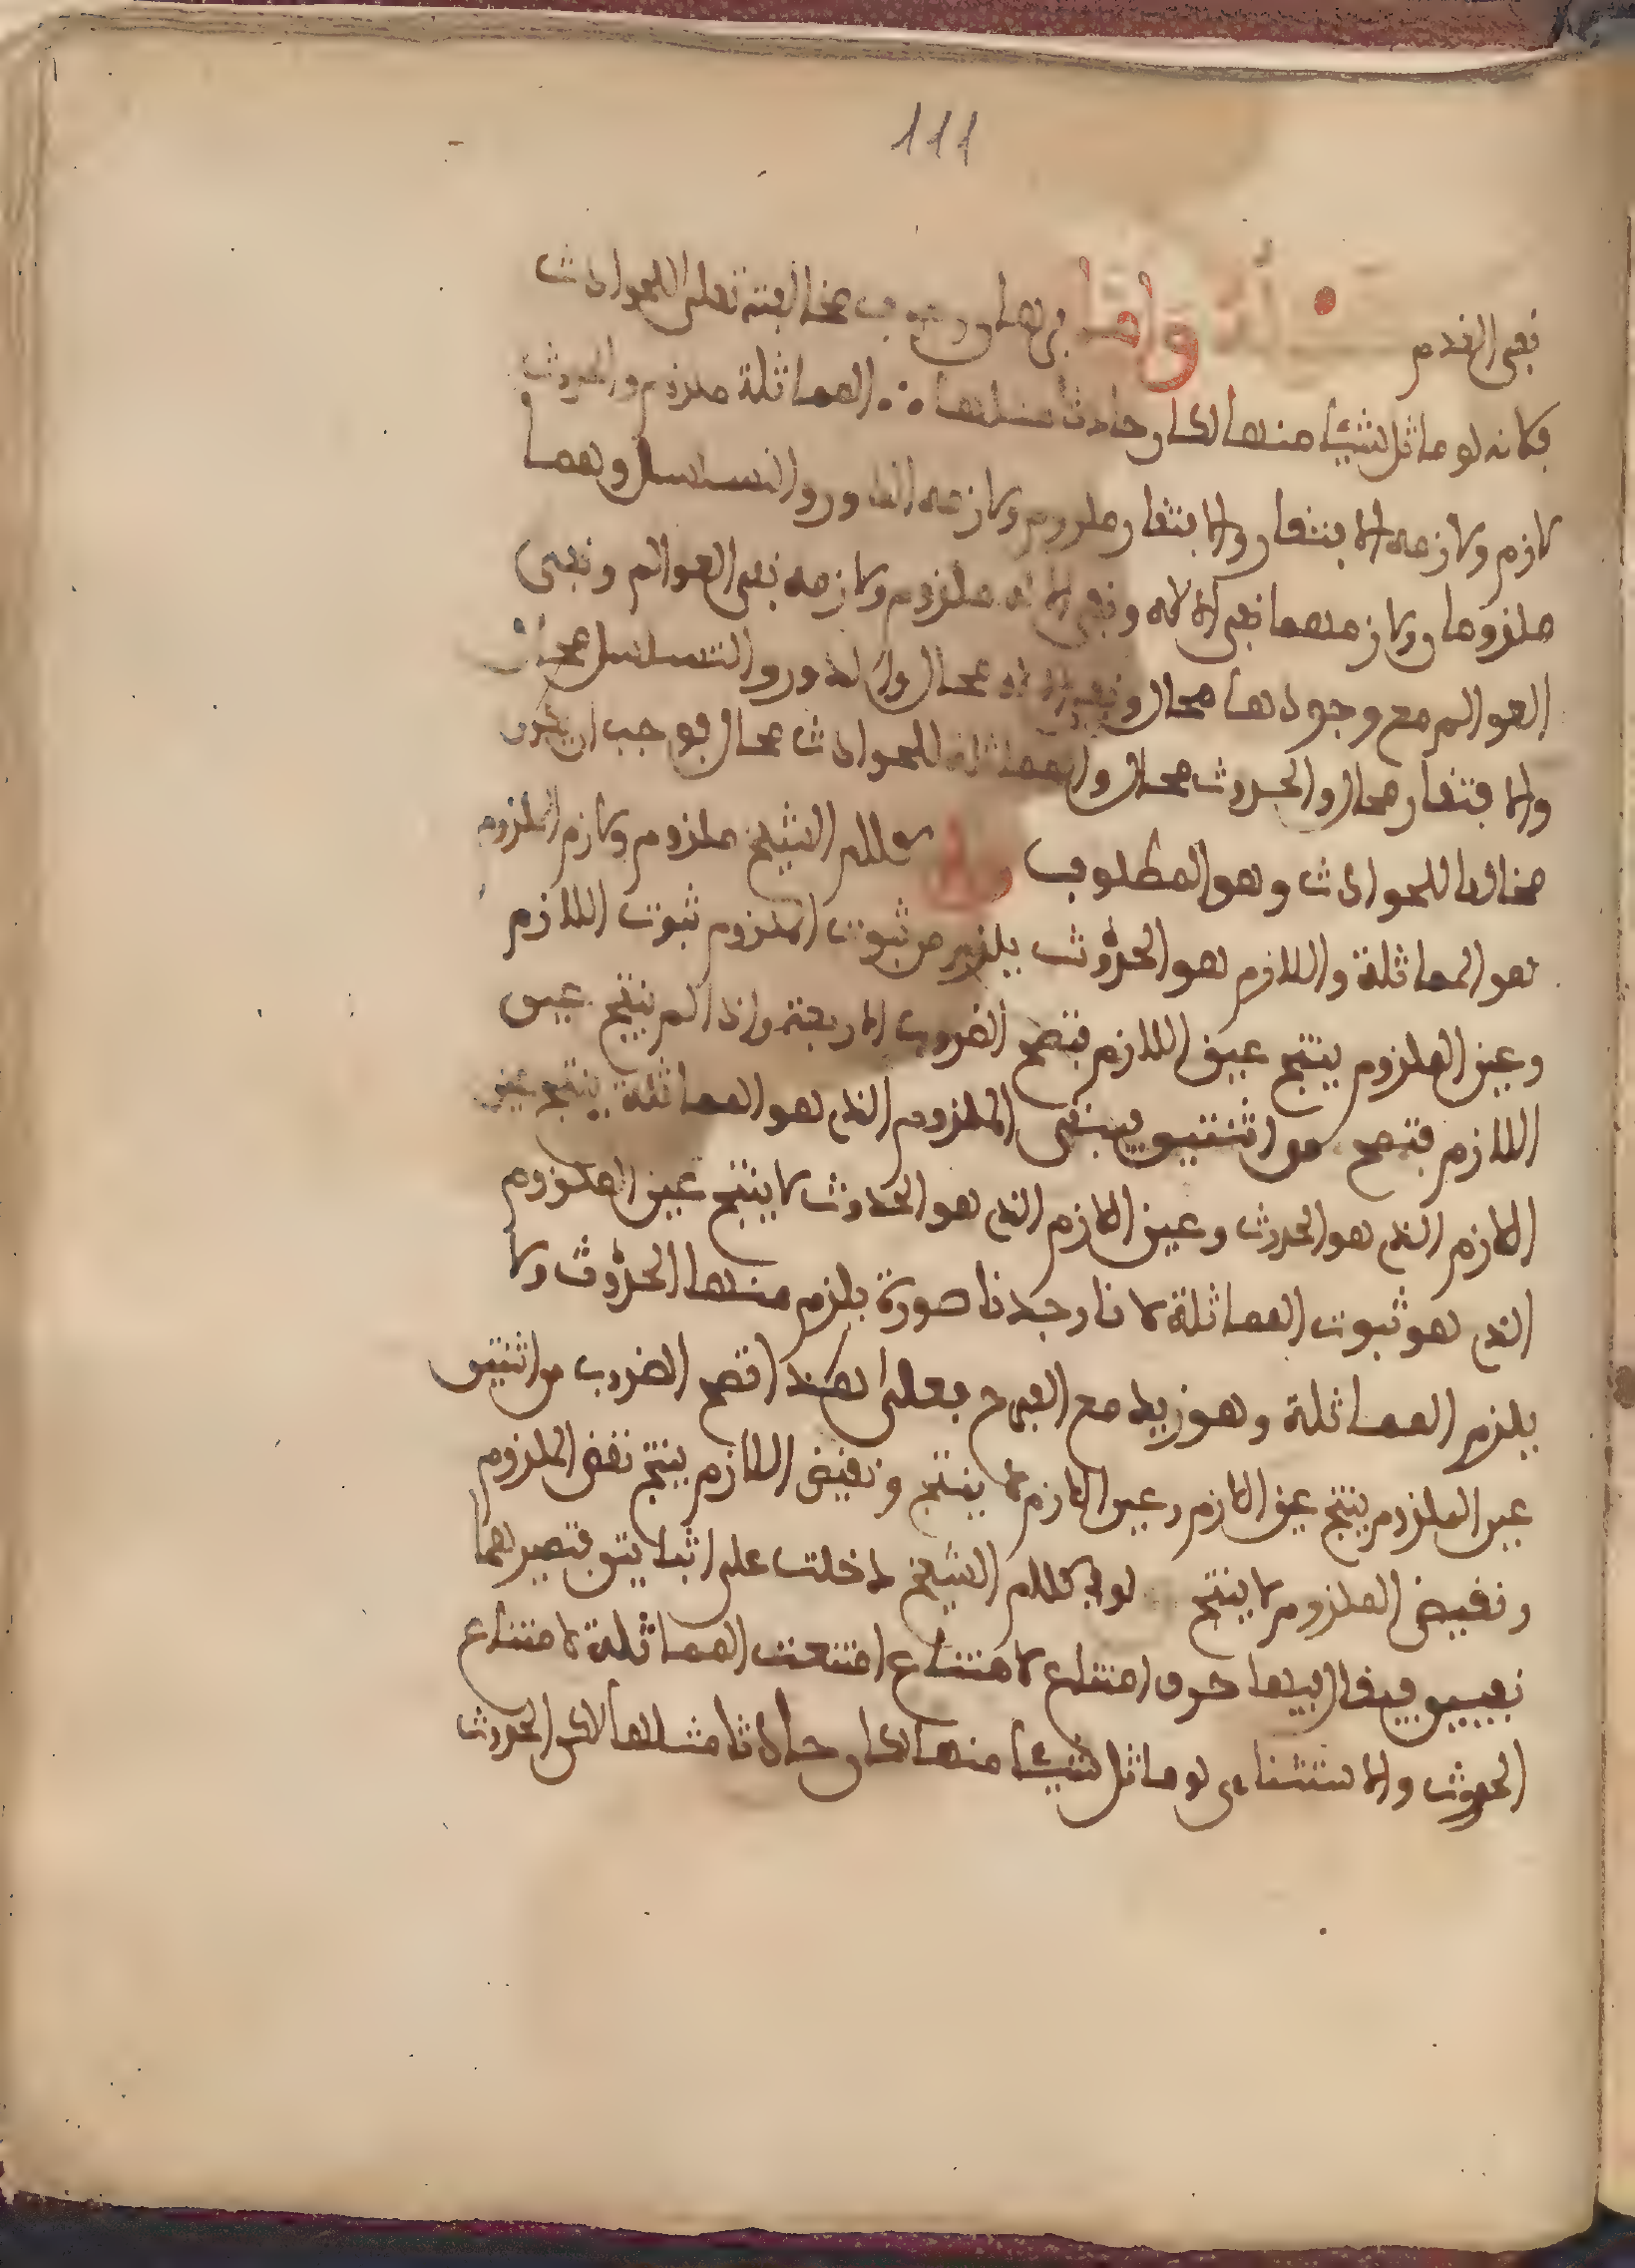 111
نفي القدم وأما برهان وجوب مخالفته تعلى للحوادث
فلانه لو ماثل شيئا منها لكان حادثا مثلها ∴ المماثلة ملزوم والحدوث
لازم ولازمه الافتقار والافتقار ملزوم ولازمه الدور والتسلسل وهما
ملزومان ولازمهما نفي الالاه ونفي الالاه ملزوم ولازمه نفي العوالم ونفي
العوالم مع وجودها محال ونفي الالاه محال والدور والتسلسل محال
والافتقار محال والحدوث محال والمماثلة للحوادث محال فوجب ان يكون
مخالفا للحوادث وهو المطلوب كلام الشيخ ملزوم ولازم الملزوم
هو المماثلة واللازم هو الحدوث يلزم من ثبوت الملزوم ثبوت اللازم
وعين الملزوم ينتج عين اللازم فتصح الضروب الاربعة واذا لم ينتج عين
اللازم فتصح من اثنتين فينفى الملزوم الذي هو المماثلة ينتج عين
اللازم الذي هو الحدوث وعين اللازم الذي هو الحدوث لا ينتج عين الملزوم
الذي هو ثبوت المماثلة لانا وجدنا صورة يلزم منها الحدوث ولا
يلزم المماثلة وهو زيد مع الفرح فعلى هذا تصح الضروب من اثنتين
عين الملزوم ينتج عين اللازم وعين اللازم لا ينتج ونقيض اللازم ينتج نقض الملزوم
ونقيض الملزوم لا ينتج لو في كلام الشيخ دخلت على اثباتين فتصيرهما
نفيين فيقال فيها حرف امتناع لامتناع امتنعت المماثلة لامتناع
الحدوث والاستثناءى لو ماثل شيئا منها لكان حادثا مثلها لاكن الحدوث